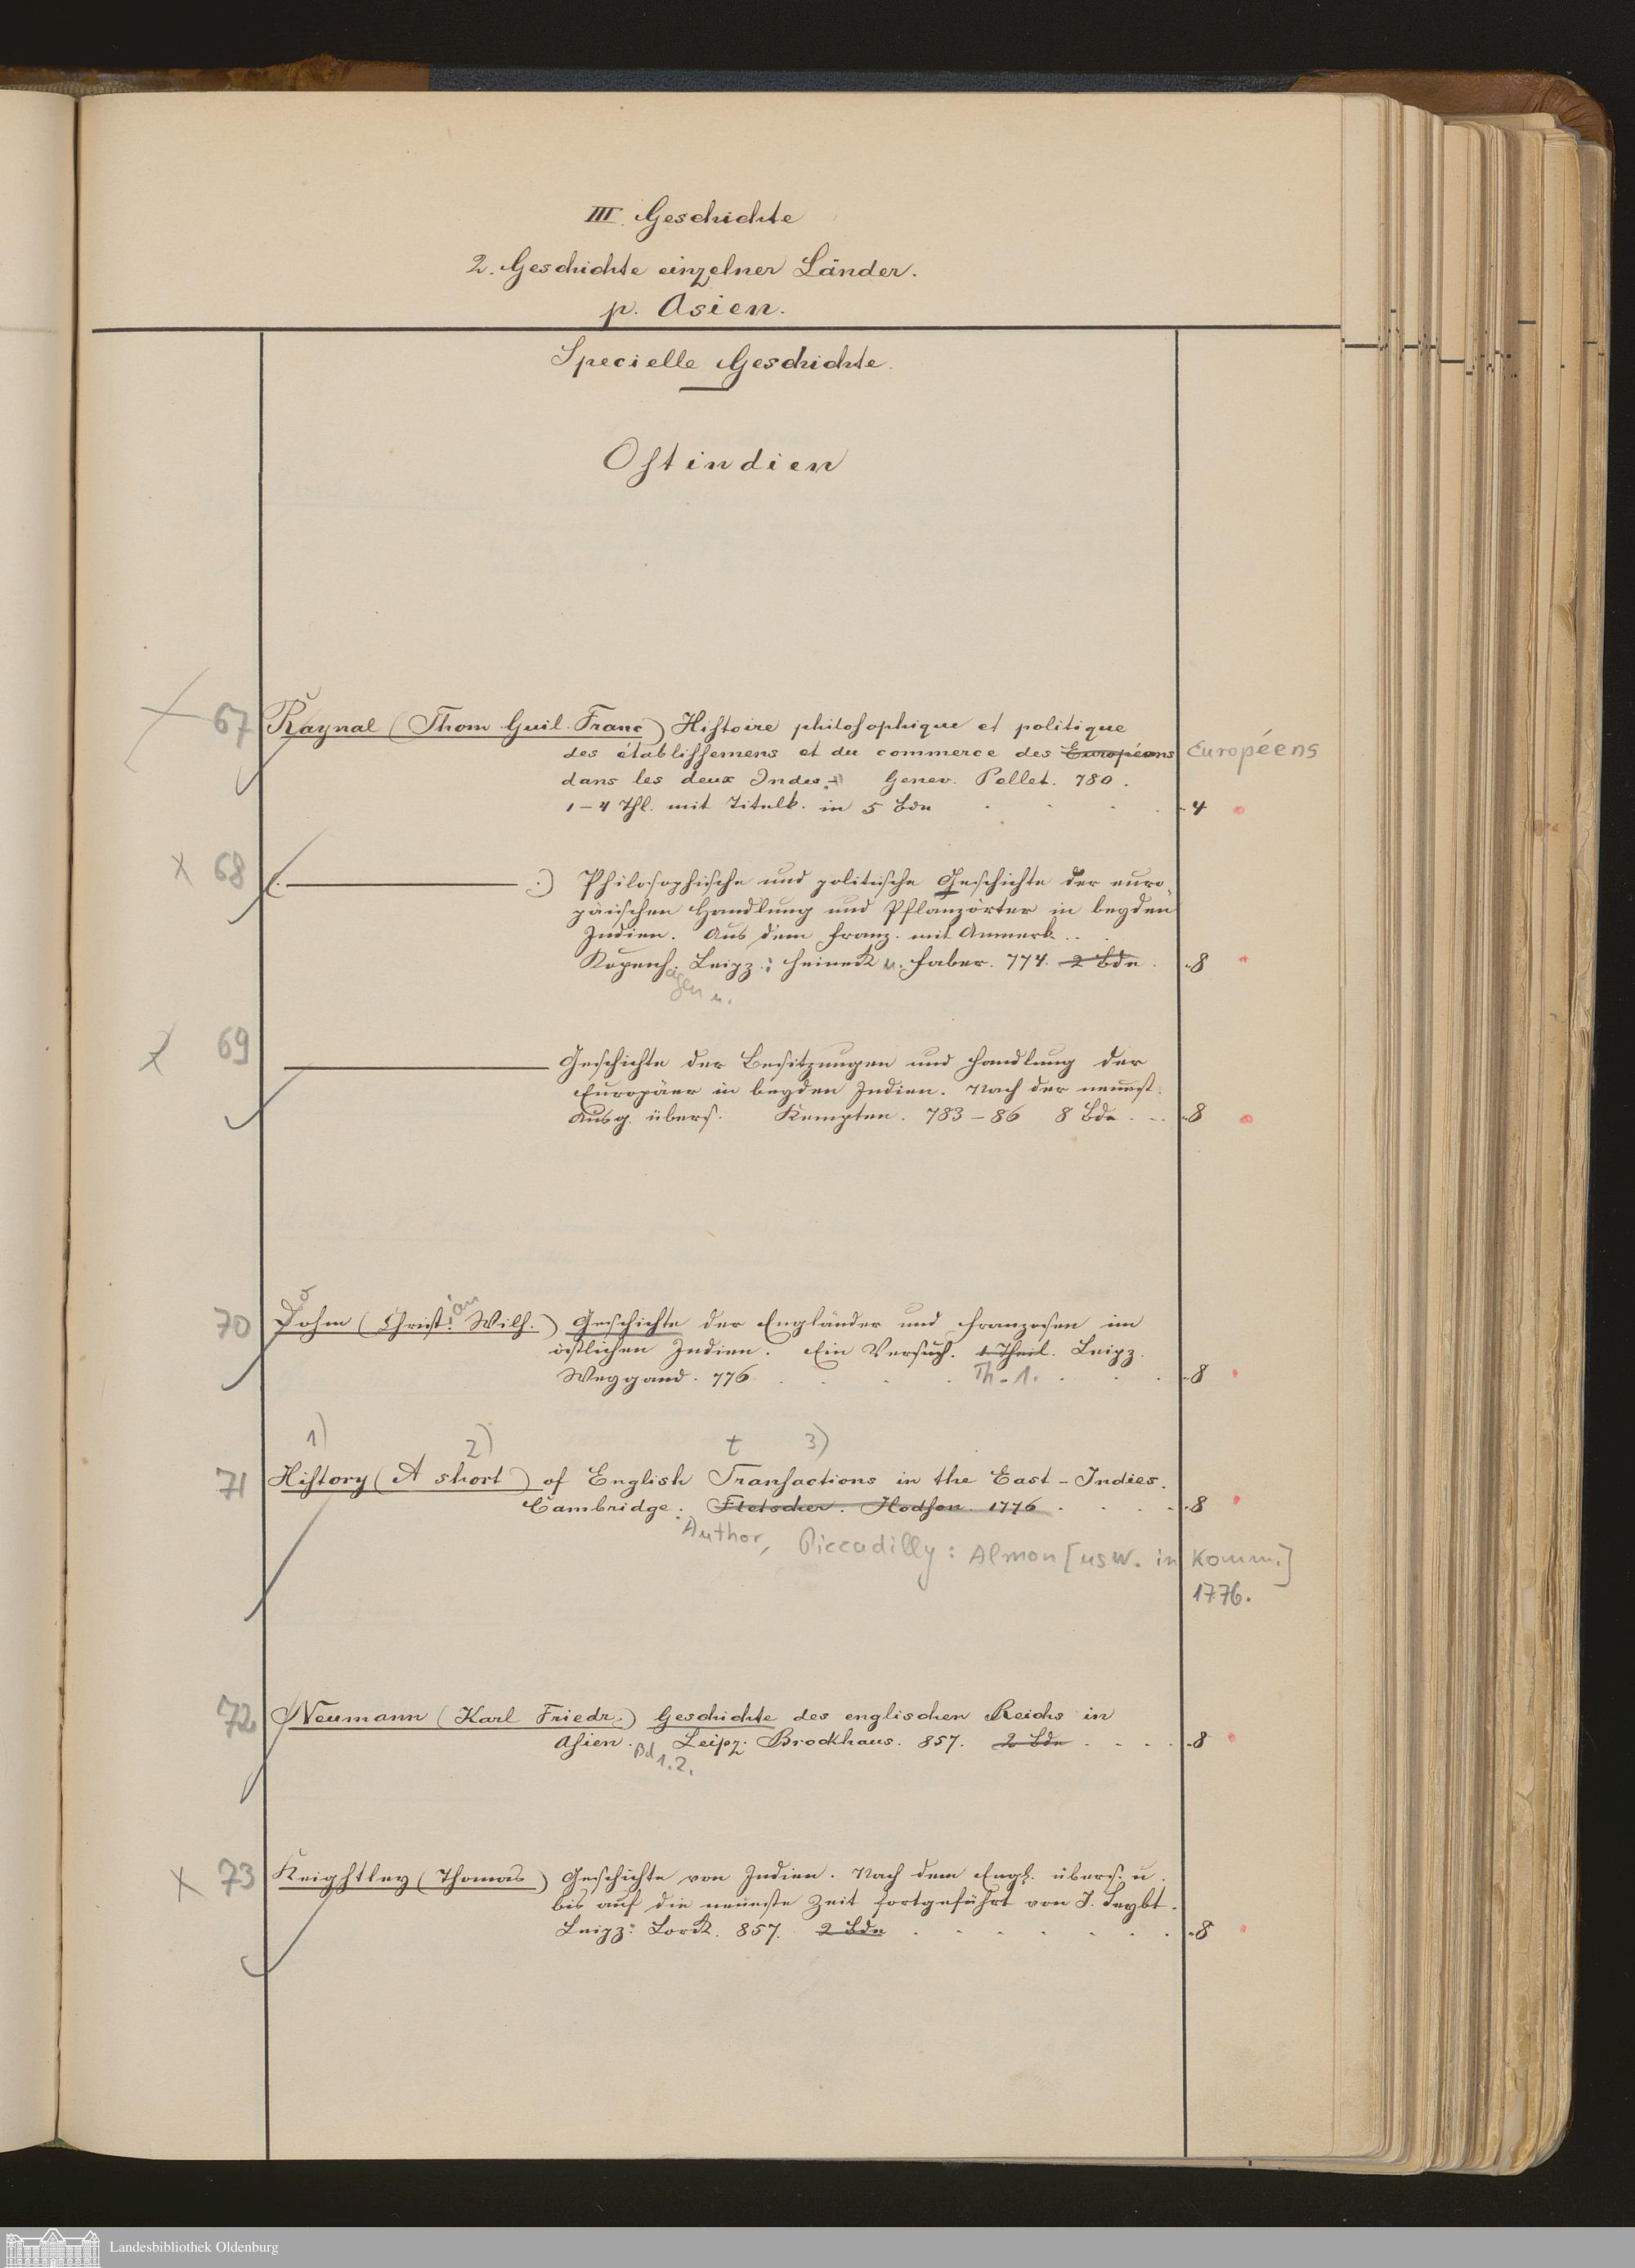 III. Geschichte
2. Geschichte einzelner Länder.
p. Asien.
Specielle Geschichte.
Ostindien
67 Raynal (Thom. Guil. Franc) Histoire philosophique et politique
des établissemens et du commerce des Européens Européens
dans les deux Indes. Genev. Pellet. 780.
1–4 Thl. mit Titelk. in 5 Bdn 4
x 68 (. ——— .) Philosophische und politische Geschichte der euro-
päischen Handlung und Pflanzörter in beyden
Indien. Aus dem Franz. mit Anmerk.
Kopenh. Leipz.: Heineck u. Faber. 774. 2 Bde. 8
agen u.
x 69 ——— Geschichte der Besitzungen und Handlung der
Europäer in beyden Indien. Nach der neuest.
Ausg. übers. Kempten. 783–86 8 Bde. 8
70 Dohm (Christ. Wilh.) Geschichte der Engländer und Franzosen im
ian
östlichen Indien. Ein Versuch. 1. Theil. Leipz.
Weygand. 776. Th. 1. 8
1) 2) t 3)
71 History (A short) of English Transactions in the East-Indies.
Cambridge. Fletscher. Hodson. 1776 8
Author, Piccadilly: Almon [usw. in Komm.]
1776.
72 Neumann (Karl Friedr.) Geschichte des englischen Reichs in
Asien. Leipz. Brockhaus. 857. 2 Bde 8
Bd 1.2.
x 73 Keightley (Thomas) Geschichte von Indien. Nach dem Engl. übers. u.
bis auf die neueste Zeit fortgeführt von J. Seybt.
Leipz: Lorck. 857. 2 Bde 8
Landesbibliothek Oldenburg